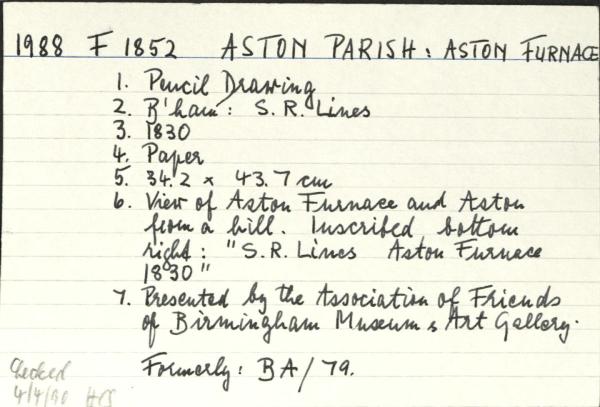 1988 F 1852 ASTON PARISH: ASTON FURNACE
1. Pencil Drawing
2. B'ham: S.R. Lines
3. 1830
4. Paper
5. 34.2 x 43.7 cm
6. View of Aston Furnace and Aston
from a hill. Inscribed bottom
right: "S.R. Lines Aston Furnace
1830"
7. Presented by the Association of Friends
of Birmingham Museum & Art Gallery.
Formerly: BA/79.
Checked
4/4/90